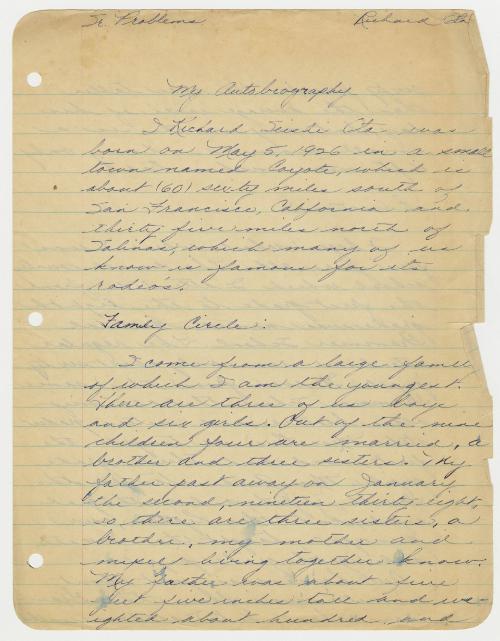 Sr. Problems Richard Ota
My Autobiography
I Richard Ota was
born on May 5, 1926 in a small
town named Coyote, which is
about (60) sixty miles south of
San Francisco, California and
thirty five miles north of
Salinas, which many of us
know is famous for its
rodeo's.
Family Circle:
I come from a large family
of which I am the youngest.
There are three of us boys
and six girls. Out of the nine
children four are married, a
brother and three sisters. My
father past away on January
the second, nineteen thirty eight,
so there are three sisters, a
brother, my mother and
myself living together know.
My father was about five
feet five inches tall and we-
ighted about hundred and